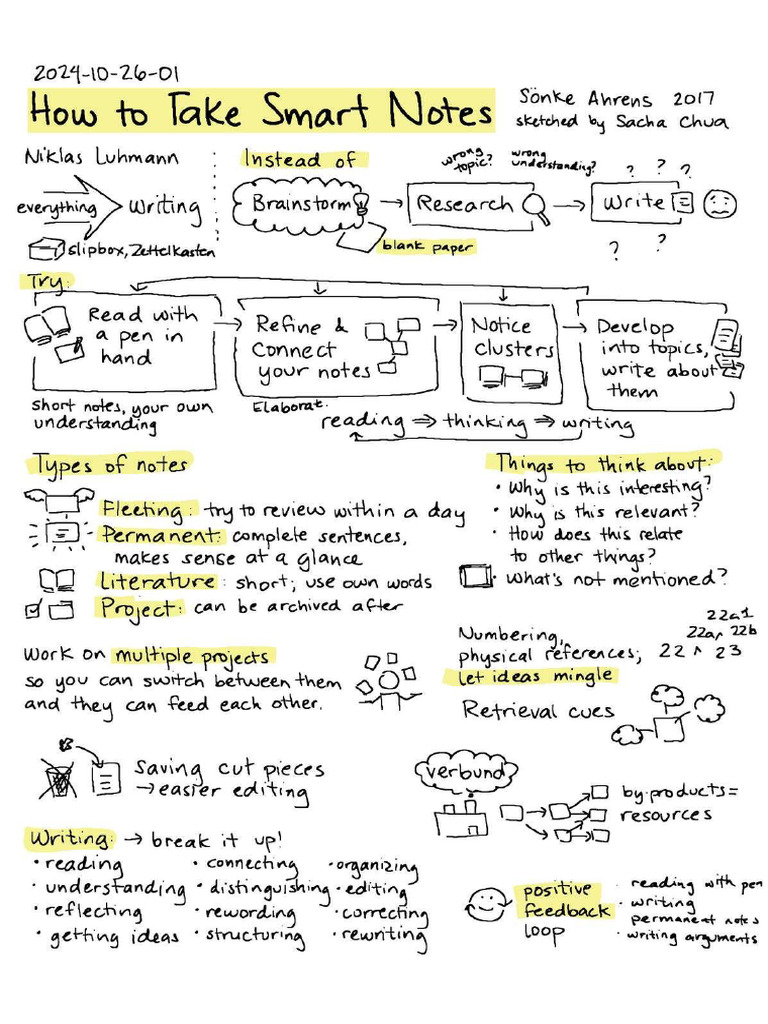 2024-10-26-01
How to Take Smart Notes
Sönke Ahrens 2017
sketched by Sacha Chua
Niklas Luhmann
everything
writing
slipbox, Zettelkasten
Instead of
Brainstorm
blank paper
wrong topic?
Research
wrong understanding?
Write
? ? ?
? ?
Try:
Read with
a pen in
hand
short notes, your own
understanding
Refine &
connect
your notes
Elaborat.
Notice
clusters
Develop
into topics,
write about
them
reading ⇒ thinking ⇒ writing
Types of notes
Fleeting: try to review within a day
Permanent: complete sentences,
makes sense at a glance
Literature: short; use own words
Project: can be archived after
Things to think about:
• Why is this interesting?
• Why is this relevant?
• How does this relate
to other things?
• what's not mentioned?
Work on multiple projects
so you can switch between them
and they can feed each other.
Numbering,
physical references;
let ideas mingle
22a1
22a 22b
22 23
Retrieval cues
saving cut pieces
→ easier editing
verbund
by-products =
resources
Writing: → break it up!
• reading
• understanding
• reflecting
• getting ideas
• connecting
• distinguishing
• rewording
• structuring
• organizing
• editing
• correcting
• rewriting
positive
feedback
loop
• reading with pen
• writing
permanent notes
• writing arguments